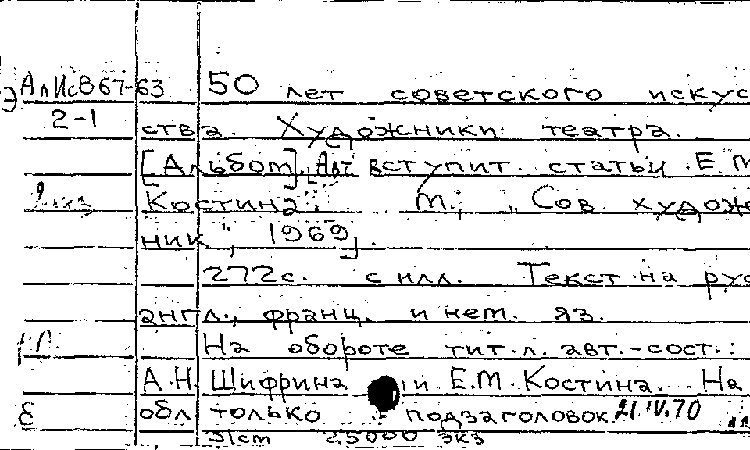 Э АлИсВ67-63 50 лет советского искус
2-1 ства. Художники театра.
[Альбом]. Авт вступит. статьи Е.М
2 экз Костина. М., "Сов. худож
ник", 1969].
272с. с илл. Текст на рус
англ., франц. и нем. яз.
На обороте тит.л. авт.-сост.:
А.Н. Шифрина и Е.М. Костина. На
обл только подзаголовок. 21.IV.70
25000 экз